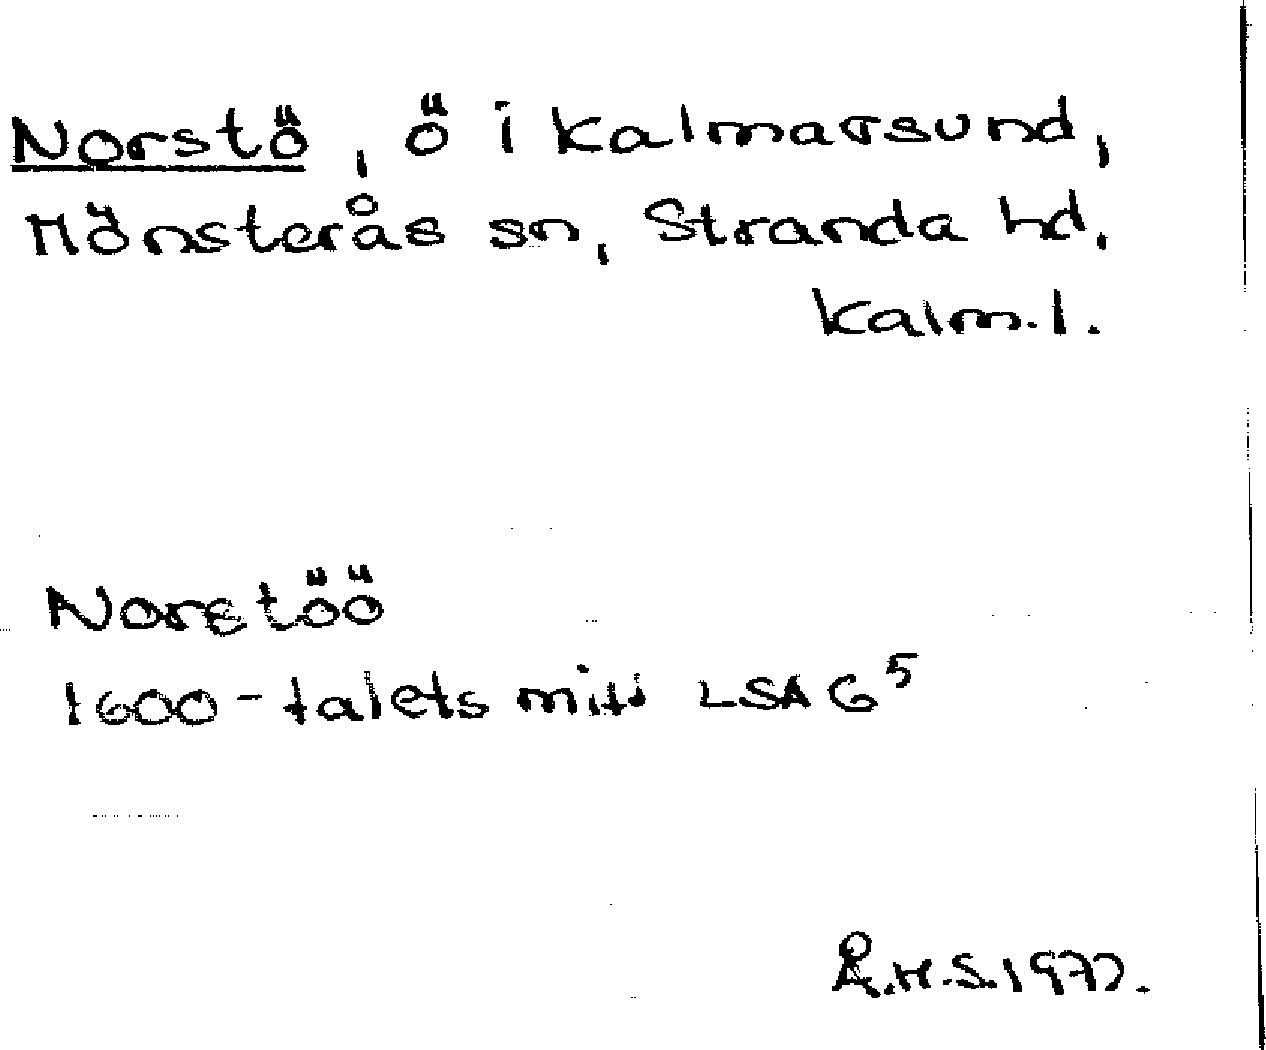 Norstö, ö i Kalmarsund,
Mönsterås sn, Stranda hd.
Kalm.l.
Norstöö
1600-talets mitt LSA G⁵
Å.H.S. 1977.